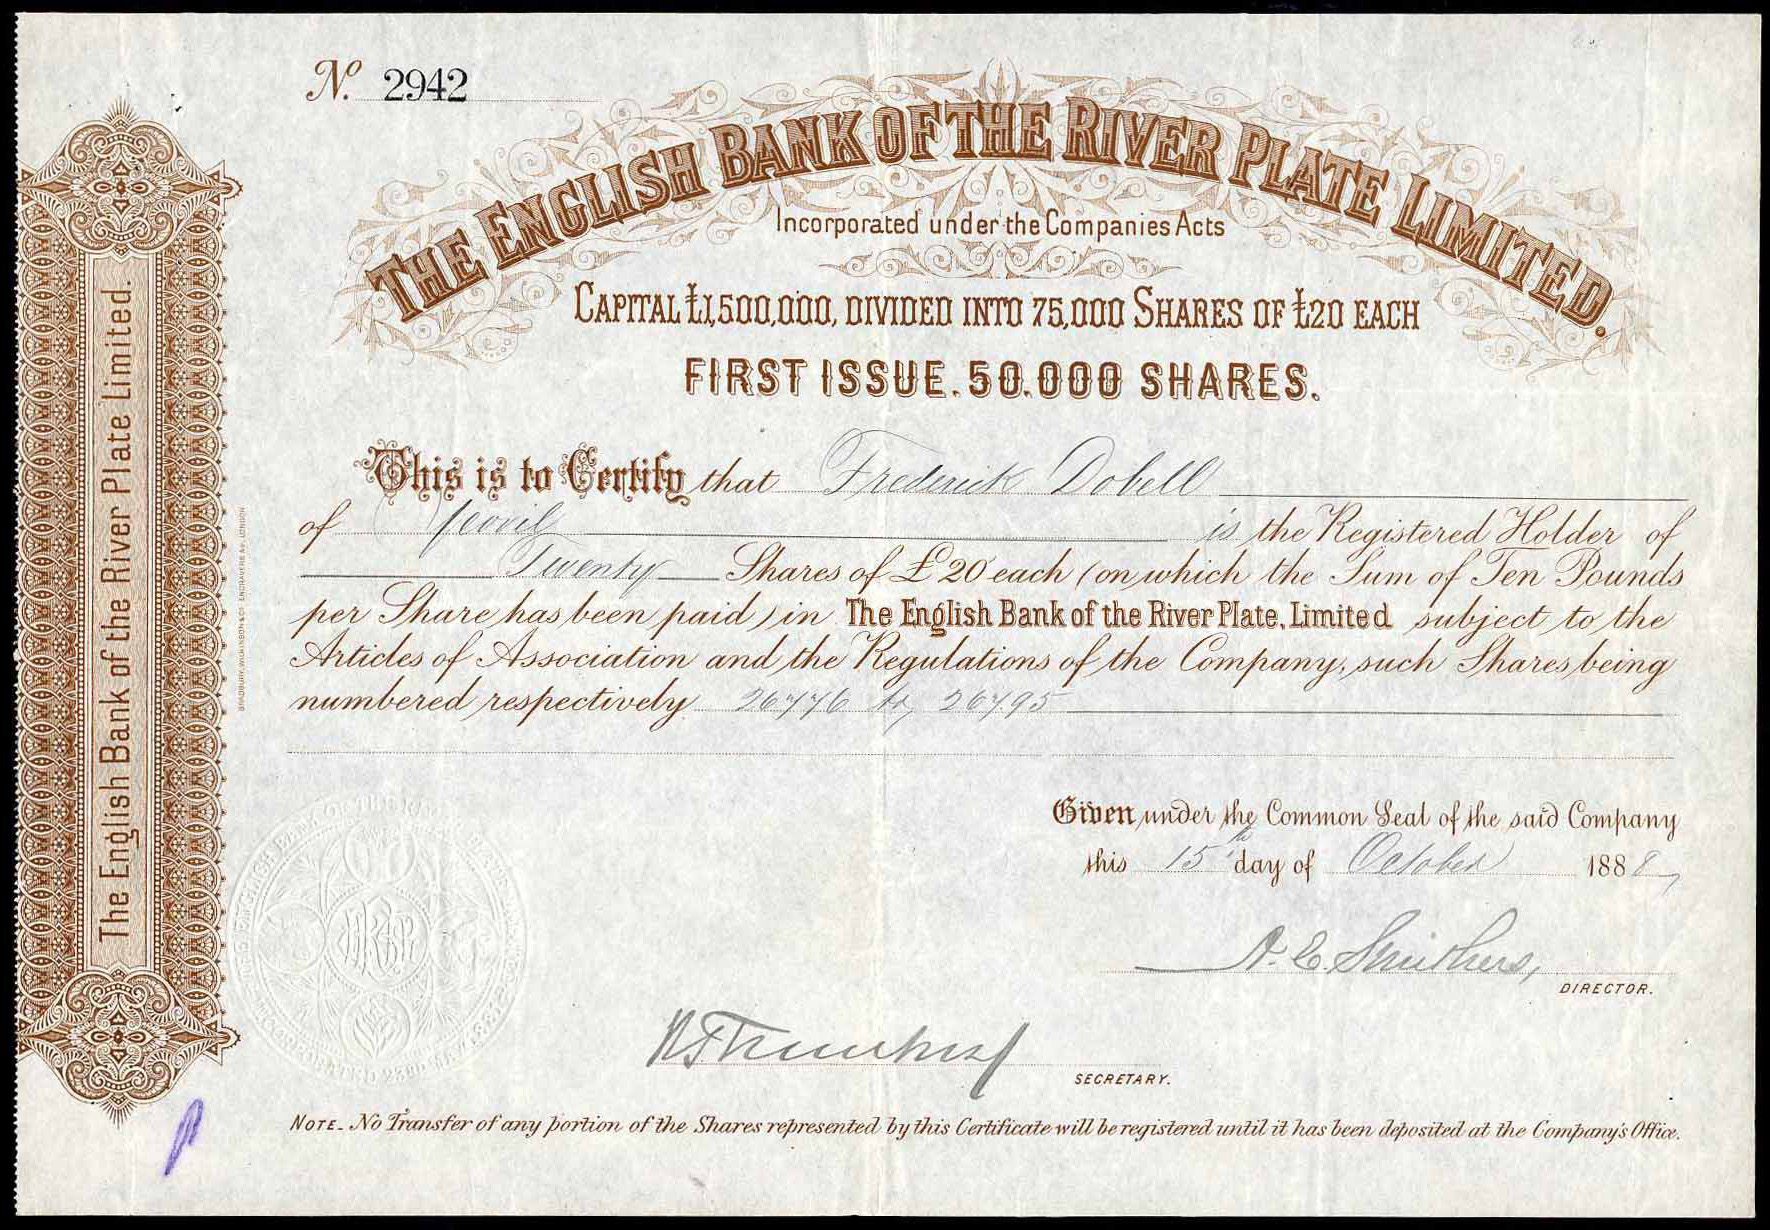 No. 2942
THE ENGLISH BANK OF THE RIVER PLATE LIMITED.
Incorporated under the Companies Acts
CAPITAL £1,500,000, DIVIDED INTO 75,000 SHARES OF £20 EACH
FIRST ISSUE. 50.000 SHARES.
This is to Certify that Frederick Dobell
of Yeovil is the Registered Holder of
Twenty Shares of £20 each (on which the Sum of Ten Pounds
per Share has been paid) in The English Bank of the River Plate, Limited subject to the
Articles of Association and the Regulations of the Company, such Shares being
numbered respectively 26776 to 26795
Given under the Common Seal of the said Company
this 15th day of October 1888
A. E. Smithers,
DIRECTOR.
SECRETARY.
NOTE. No Transfer of any portion of the Shares represented by this Certificate will be registered until it has been deposited at the Company's Office.
The English Bank of the River Plate Limited.
BRADBURY, WILKINSON & Co. ENGRAVERS &c. LONDON